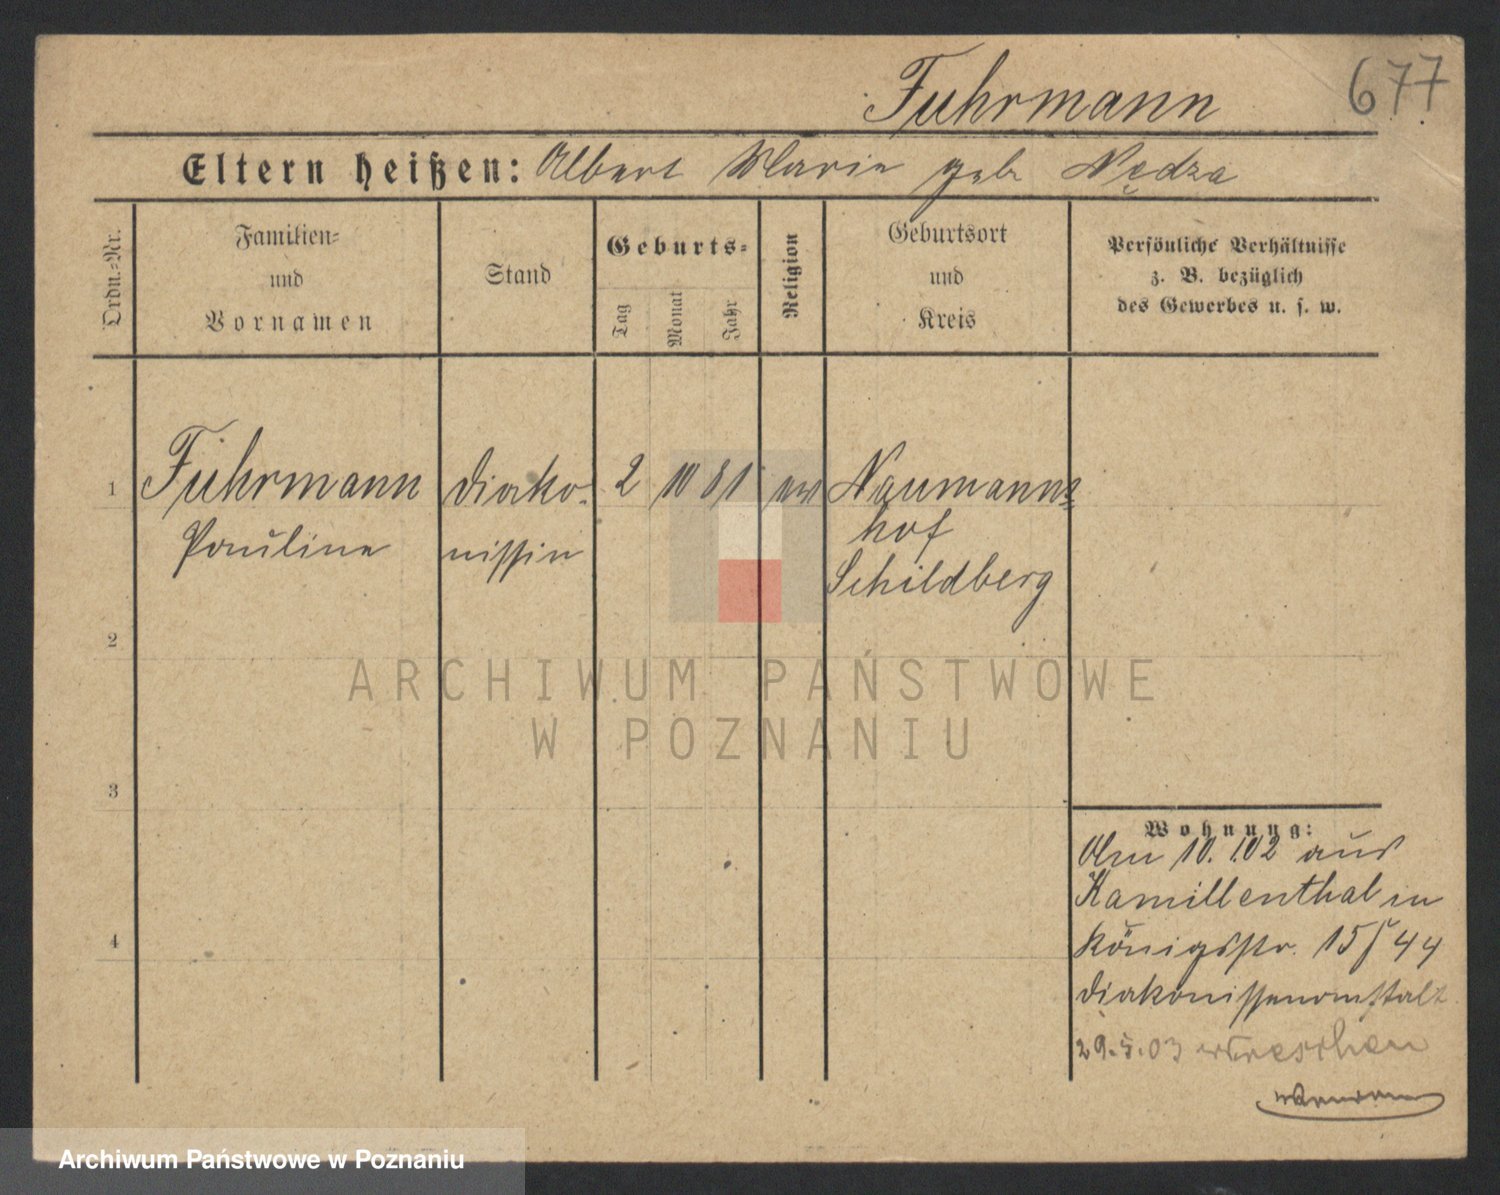 677
Fuhrmann
Eltern heißen: Albert Marie geb Nędza
Ordn.-Nr.
Familien-
und
Vornamen
Stand
Geburts-
Tag
Monat
Jahr
Religion
Geburtsort
und
Kreis
Persönliche Verhältnisse
z. B. bezüglich
des Gewerbes u. s. w.
1
Fuhrmann
Pauline
Diako-
nissin
2 10 81
ev
Naumanns-
hof
Schildberg
2
3
4
ARCHIWUM PAŃSTWOWE
W POZNANIU
Wohnung:
Am 10. 1.02 aus
Kamillenthal in
Königsstr. 15/44
Diakonissenanstalt
29.5.03 Wreschen
Archiwum Państwowe w Poznaniu